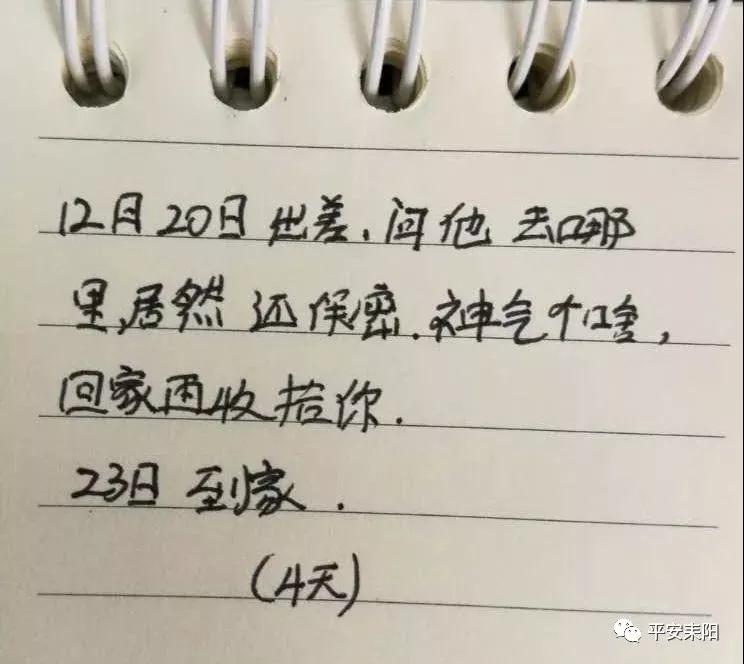 12月20日出差.问他去哪
里,居然还保密.神气个啥,
回家再收拾你.
23日到家.
(4天)
平安耒阳